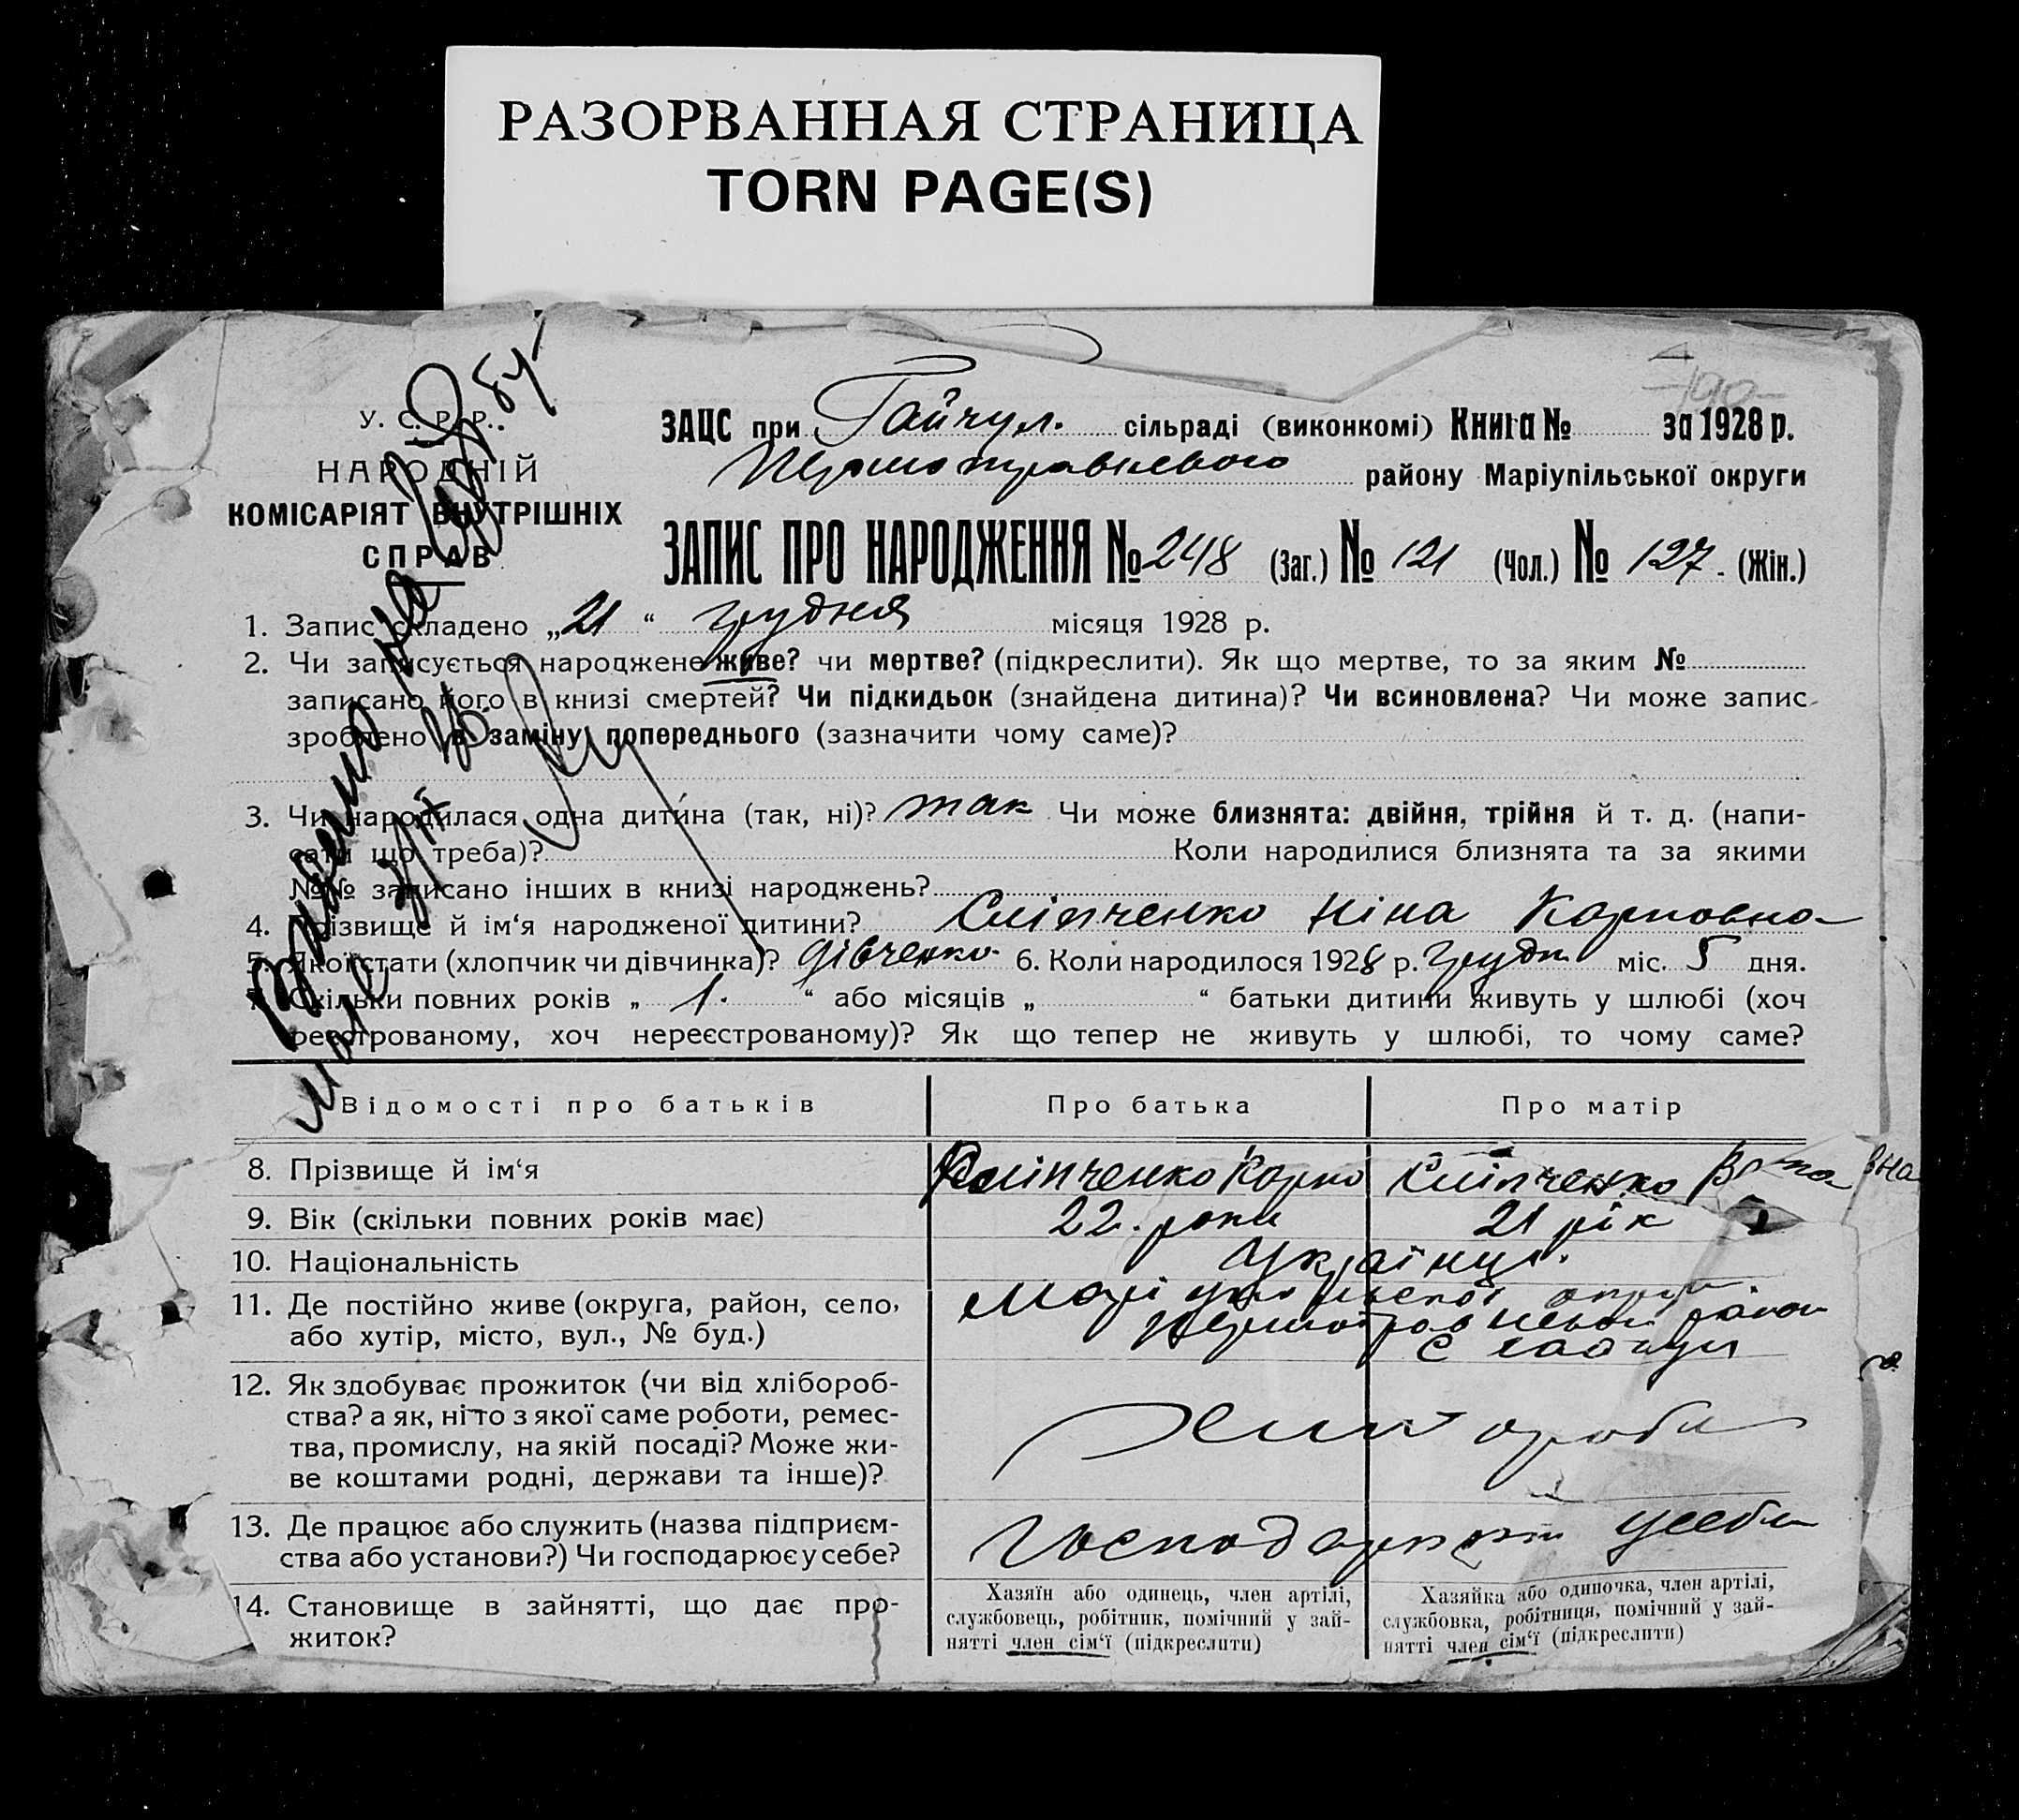 РАЗОРВАННАЯ СТРАНИЦА
TORN PAGE(S)
У. С. Р. Р.
НАРОДНІЙ
КОМІСАРІЯТ ВНУТРІШНІХ
СПРАВ
ЗАЦС при Гайчул. сільраді (виконкомі) Книга № за 1928 р.
Першотравневого району Маріупільської округи
ЗАПИС ПРО НАРОДЖЕННЯ № 248 (Заг.) № 121 (Чол.) № 127 (Жін.)
1. Запис складено „21“ грудня місяця 1928 р.
2. Чи записується народжене живе? чи мертве? (підкреслити). Як що мертве, то за яким №
записано його в книзі смертей? Чи підкидьок (знайдена дитина)? Чи всиновлена? Чи може запис
зроблено в заміну попереднього (зазначити чому саме)?
3. Чи народилася одна дитина (так, ні)? так Чи може близнята: двійня, трійня й т. д. (напи-
сати що треба)? Коли народилися близнята та за якими
№№ записано інших в книзі народжень?
4. Прізвище й ім‘я народженої дитини? Сліпченко Ніна Карповна
5. Якої стати (хлопчик чи дівчинка)? дівченко 6. Коли народилося 1928 р. грудн. міс. 5 дня.
7. Скільки повних років „ 1. “ або місяців „ “ батьки дитини живуть у шлюбі (хоч
реєстрованому, хоч нереєстрованому)? Як що тепер не живуть у шлюбі, то чому саме?
Відомості про батьків Про батька Про матір
8. Прізвище й ім‘я Сліпченко Карпо Сліпченко
9. Вік (скільки повних років має) 22. роки 21 рік
10. Національність Українці.
11. Де постійно живе (округа, район, село, Маріупільської округи
або хутір, місто, вул., № буд.) Першотравневий район
с Гайчул
12. Як здобуває прожиток (чи від хлібороб-
ства? а як, ні то з якої саме роботи, ремес-
тва, промислу, на якій посаді? Може жи-
ве коштами родні, держави та інше)?
Хлібороби
13. Де працює або служить (назва підприєм-
ства або установи?) Чи господарює у себе?
Господарюють усебе
14. Становище в зайнятті, що дає про-
житок?
Хазяїн або одинець, член артілі,
службовець, робітник, помічний у зай-
нятті член сім‘ї (підкреслити)
Хазяйка або одиночка, член артілі,
службовка, робітниця, помічний у зай-
нятті член сім‘ї (підкреслити)